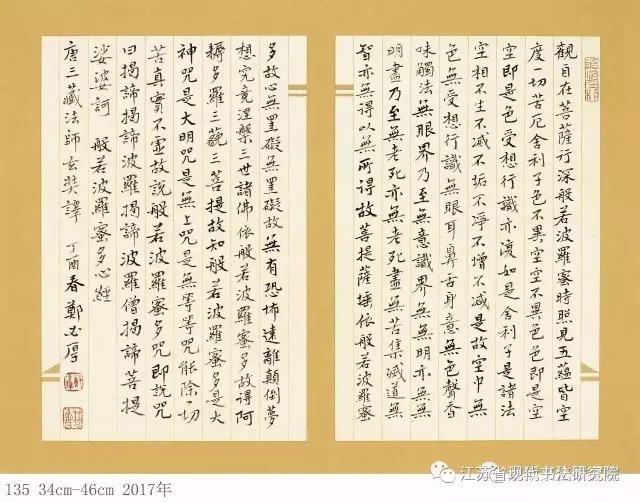 觀自在菩薩行深般若波羅蜜時照見五蘊皆空
度一切苦厄舍利子色不異空空不異色色即是空
空即是色受想行識亦復如是舍利子是諸法
空相不生不滅不垢不淨不增不減是故空中無
色無受想行識無眼耳鼻舌身意無色聲香
味觸法無眼界乃至無意識界無無明亦無無
明盡乃至無老死亦無老死盡無苦集滅道無
智亦無得以無所得故菩提薩埵依般若波羅蜜
多故心無罣礙無罣礙故無有恐怖遠離顛倒夢
想究竟涅槃三世諸佛依般若波羅蜜多故得阿
耨多羅三藐三菩提故知般若波羅蜜多是大
神咒是大明咒是無上咒是無等等咒能除一切
苦真實不虛故說般若波羅蜜多咒即說咒
曰揭諦揭諦波羅揭諦波羅僧揭諦菩提
娑婆訶 般若波羅蜜多心經
唐三藏法師玄奘譯 丁酉春鄭必厚
135 34cm-46cm 2017年
江苏省现代书法研究院